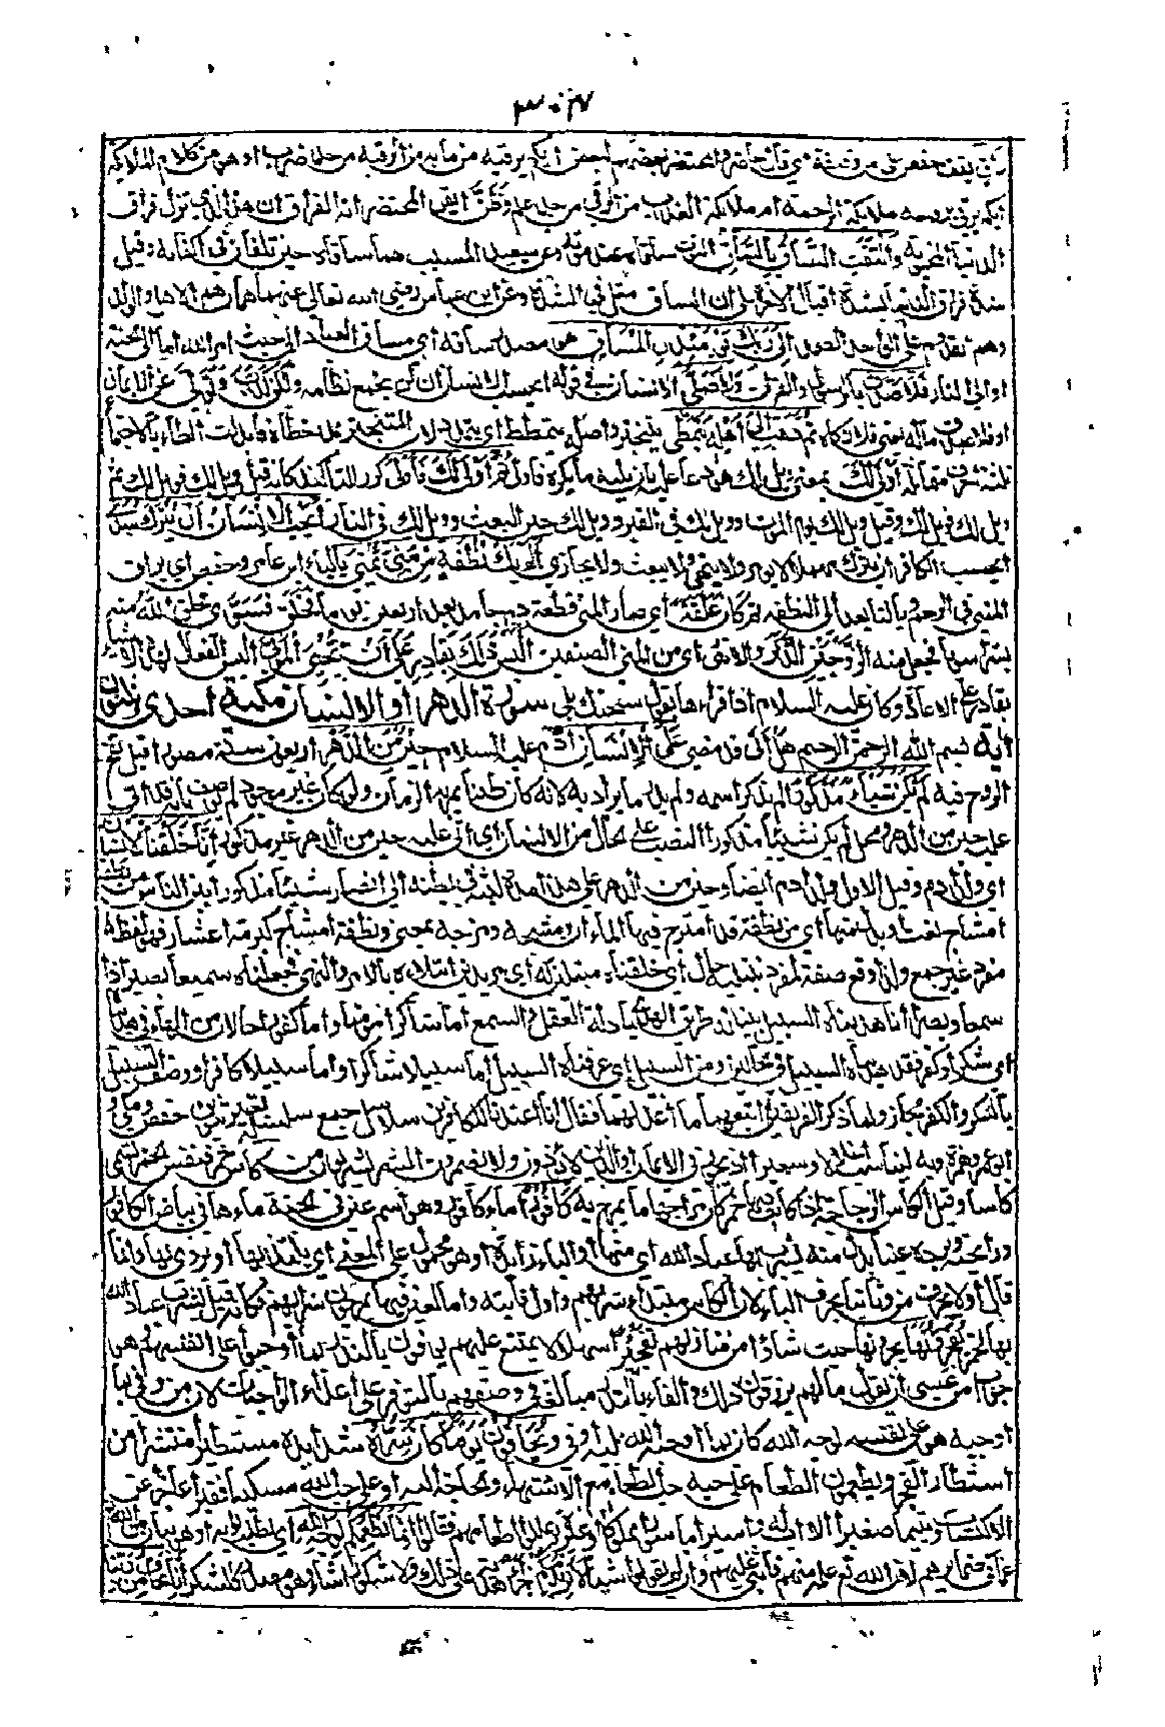 ٣٠٧
يقف حفص على من وقيفة ثم قال حاضروا المحتضر بعضهم لبعض أيكم يرقيه مما به من الرقية أو هو من كلام الملائكة
أيكم يرقى بروحه ملائكة الرحمة أم ملائكة العذاب من الرقي وظن أيقن المحتضر انه الفراق ان هذا الذي نزل فراق
الدنيا المحبوبة والتفت الساق بالساق التوت ساقاه عند موته وعن سعيد بن المسيب هما ساقاه حين تلفان في أكفانه وقيل
شدة فراق الدنيا بشدة اقبال الآخرة على ان الساق مثل في الشدة وعن ابن عباس رضي الله تعالى عنهما هما هم الاهل والولد
وهم القدوم على الواحد الصمد الى ربك يومئذ المساق هو مصدر ساقه أي مساق العباد الى حيث امر الله اما الى الجنة
او الى النار فلا صدق بالرسول والقرآن ولا صلى الانسان في قوله ايحسب الانسان ان لن نجمع عظامه ولكن كذب وتولى عن الايمان
او فلا صدق ماله يعني فلا زكاه ثم ذهب الى أهله يتمطى يتبختر واصله يتمطط أي يتمدد لان المتبختر يمد خطاه فابدلت الطاء ياء لاجتماع
ثلثة أحرف متماثلة أولى لك بمعنى ويل لك وهو دعاء عليه بان يليه ما يكره فأولى ثم أولى لك فأولى كرر للتأكيد كانه قيل ويل لك فويل لك ثم
ويل لك فويل لك وقيل ويل لك يوم الموت وويل لك في القبر وويل لك حين البعث وويل لك في النار أيحسب الانسان أن يترك سدى
ايحسب الكافر ان يترك مهملا لا يؤمر ولا ينهى ولا يبعث ولا يجازى ألم يك نطفة من مني يمنى بالياء ابن عامر وحفص أي يراق
المني في الرحم وبالتاء يعود الى النطفة ثم كان علقة أي صار المني قطعة دم جامد بعد اربعين يوما فخلق فسوى فخلق الله منه
بشرا سويا فجعل منه الزوجين الذكر والانثى أي من المني الصنفين أليس ذلك بقادر على أن يحيي الموتى اليس الفعال لهذه الاشياء
بقادر على الاعادة وكان عليه السلام اذا قرأها يقول سبحنك بلى سورة الدهر أو الانسان مكية احدى وثلثون
آية بسم الله الرحمن الرحيم هل أتى قد مضى على الانسان آدم عليه السلام حين من الدهر اربعون سنة مصورا قبل نفخ
الروح فيه لم يكن شيئا مذكورا لم يذكر اسمه ولم يدر ما يراد به لانه كان طينا يمر به الزمان ولو كان غير موجود لم يوصف بانه قد اتى
عليه حين من الدهر ومحل لم يكن شيئا مذكورا النصب على الحال من الانسان أي اتى عليه حين من الدهر غير مذكور انا خلقنا الانسان
اي ولد آدم وقيل الاول ولد آدم ايضا وحين من الدهر على هذا مدة لبثه في بطن امه الى ان صار شيئا مذكورا بين الناس من نطفة
امشاج نعت أو بدل منها أي من نطفة قد امتزج فيها الماءان ومشجه ومزجه بمعنى ونطفة امشاج كبرمة اعشار فهو لفظ
مفرد غير جمع ولذا وقع صفة للمفرد نبتليه حال أي خلقناه مبتلين له أي مريدين ابتلاءه بالامر والنهي فجعلناه سميعا بصيرا ذا
سمع وبصر انا هديناه السبيل بينا له طريق الهدى بادلة العقل والسمع اما شاكرا مؤمنا واما كفورا حالان من الهاء في هديناه
أي شكر او كفر فقد هديناه السبيل في الحالين او من السبيل أي عرفناه السبيل اما سبيلا شاكرا واما سبيلا كافرا ووصف السبيل
بالشكر والكفر مجاز ولما ذكر الفريقين اتبعهما ما اعد لهما فقال انا اعتدنا للكافرين سلاسل جمع سلسلة بغير تنوين حفص ومكي
ابو عمرو وحمزة وبه ليناسب اغلالا وسعيرا اذ يجوز في الاعراب واغلالا وسعيرا لنا ان الابرار يشربون من كأس خمر فنفس الخمر تسمى
كأسا وقيل الكأس الزجاجة اذا كانت فيها خمر كان مزاجها ما يمزج به كافورا ماء كافور وهو اسم عين في الجنة ماءها في بياض الكافور
ورائحته وبرده عينا بدل منه يشرب بها عباد الله أي منها أو الباء زائدة أو هو محمول على المعنى أي يلتذ بها أو يروى بها وانما
قال أولا بحرف من وثانيا بحرف الباء لان الكأس مبتدأ شربهم واول غايته واما العين فبها يمزجون شرابهم فكأنه قيل يشرب عباد الله
بها الخمر يفجرونها يجرونها حيث شاؤا من منازلهم تفجيرا سهلا لا يمتنع عليهم يوفون بالنذر بما أوجبوا على انفسهم وهو
جواب من عسى ان يقول ما لهم يرزقون ذلك والوفاء بالنذر مبالغة في وصفهم بالتوفر على أداء الواجبات لان من وفى بما
أوجبه هو على نفسه لوجه الله كان بما أوجبه الله عليه أوفى ويخافون يوما كان شره شدائده مستطيرا منتشرا من
استطار الفجر ويطعمون الطعام على حبه حب الطعام مع الاشتهاء والحاجة اليه أو على حب الله مسكينا فقيرا عاجزا عن
الاكتساب ويتيما صغيرا لا اب له واسيرا ماسورا مملوكا أو غيره عللوا اطعامهم فقالوا انما نطعمكم لوجه الله أي لطلب ثوابه أو هو بيان من الله
عما في ضمائرهم لان الله تعالى علمه منهم فاثنى عليهم وان لم يقولوا شيئا لا نريد منكم جزاء هدية على ذلك ولا شكورا ثناء وهو مصدر كالشكر انا نخاف من ربنا